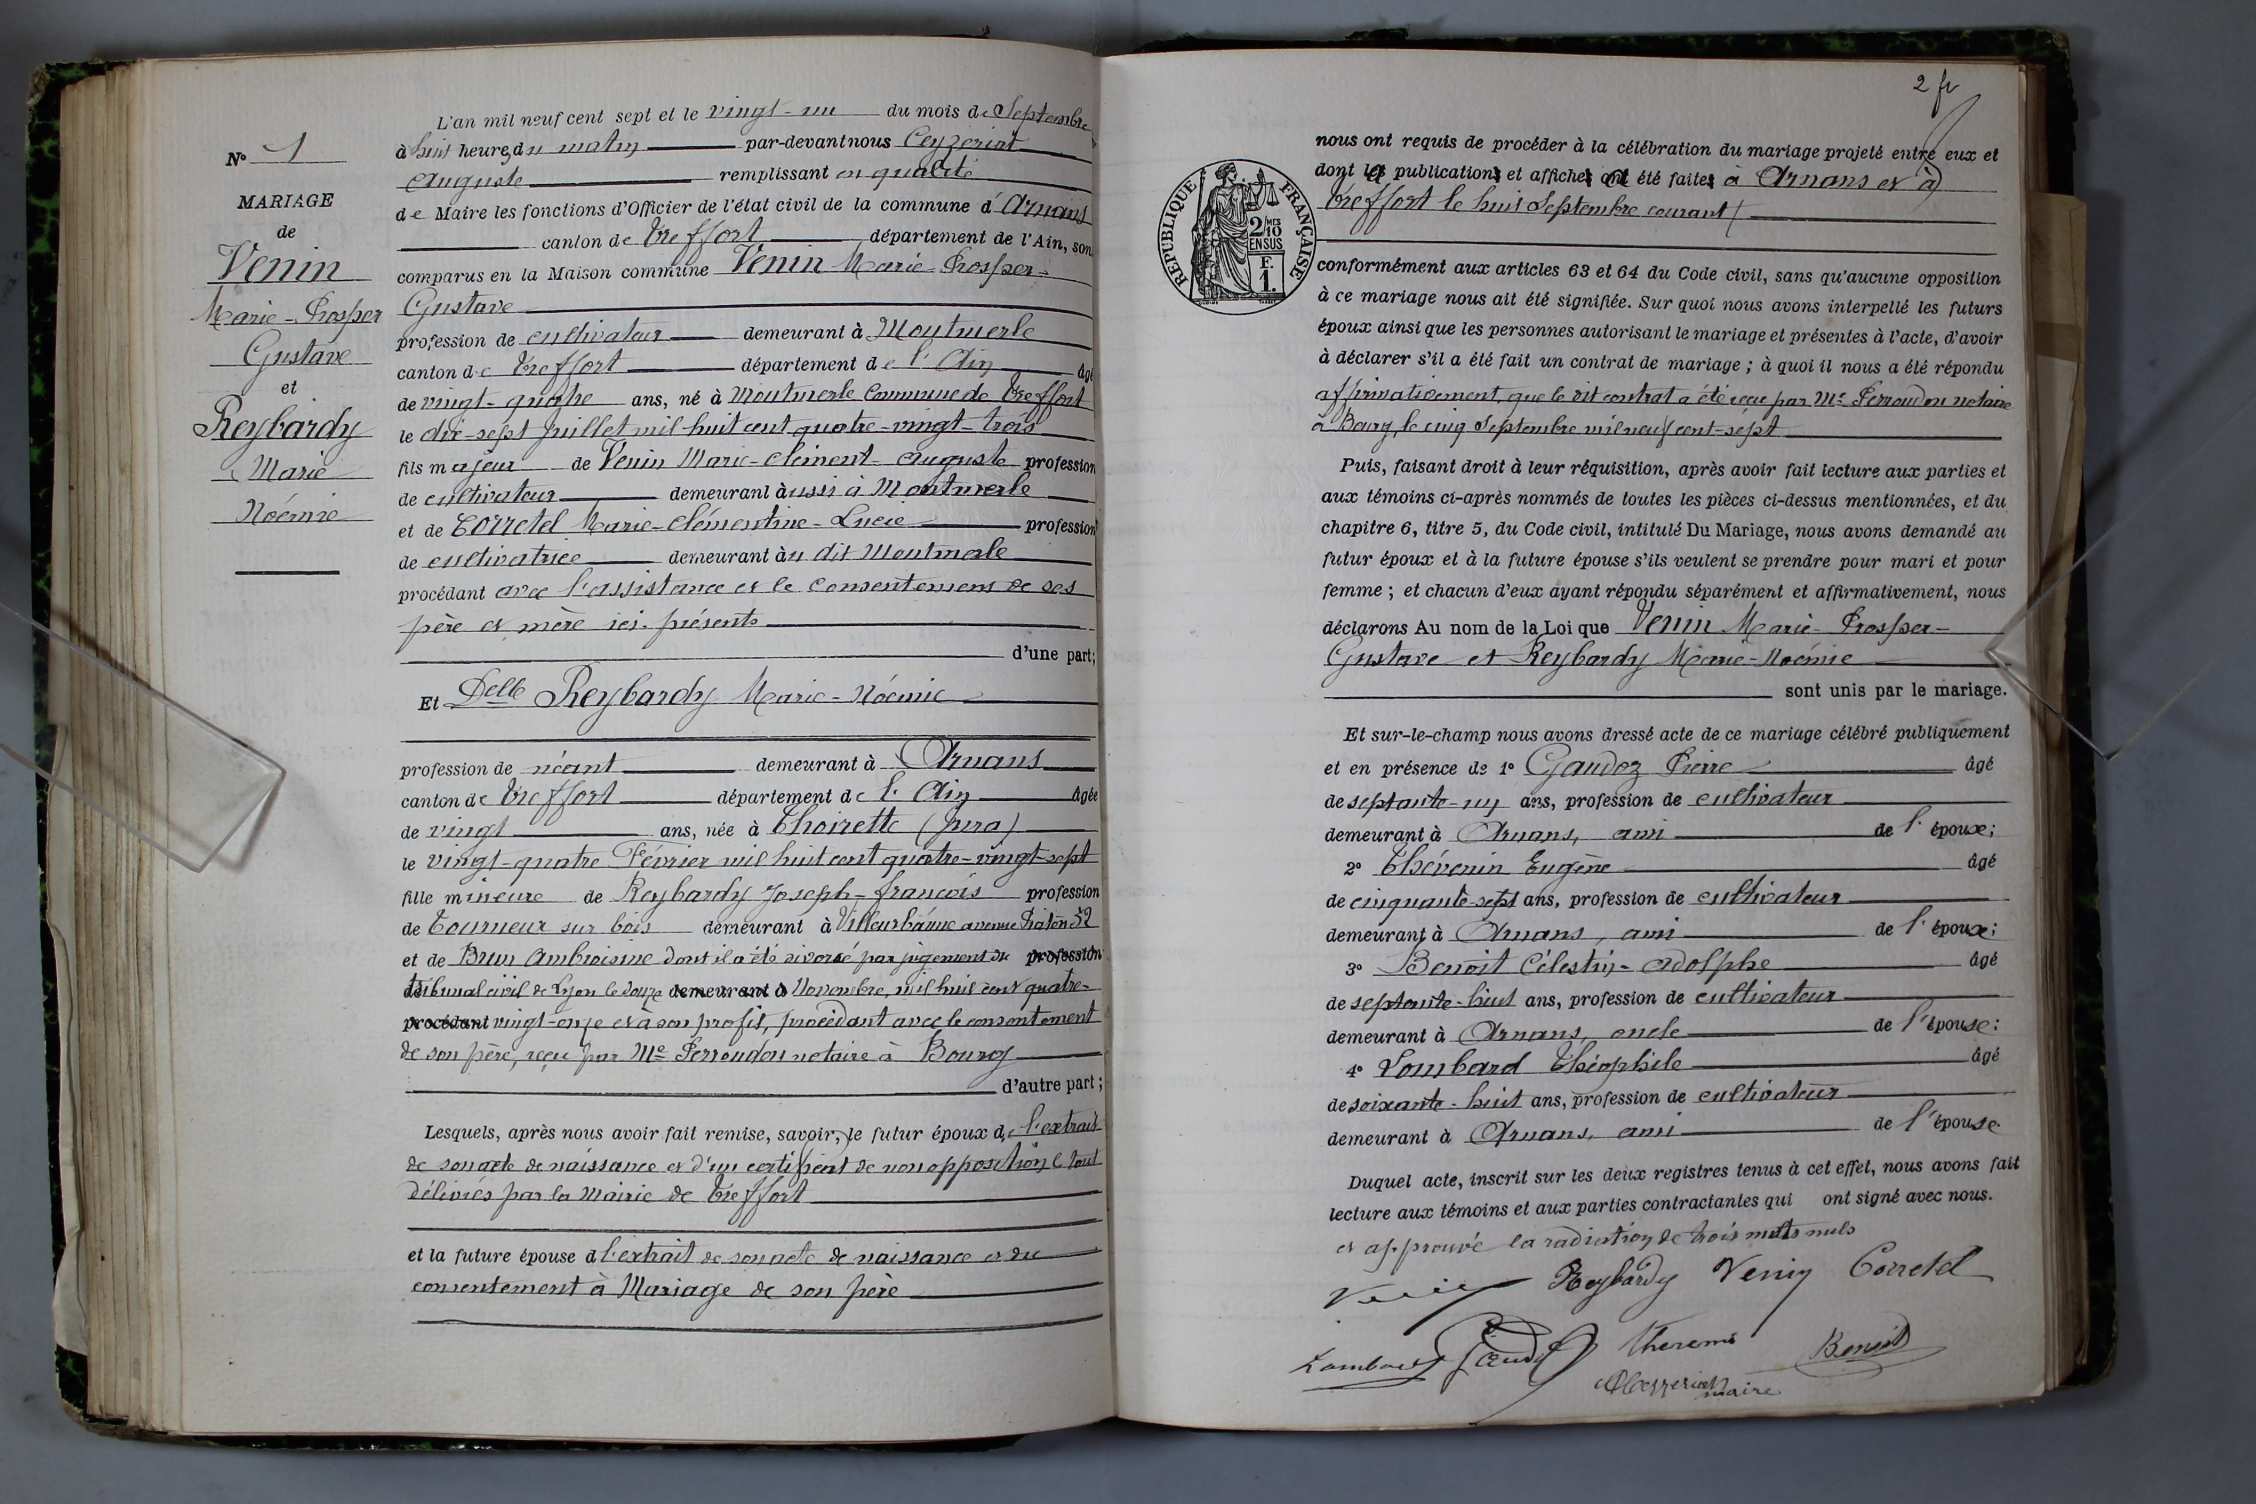 N° 1
MARIAGE
de
Venin
Marie-Prosper
Gustave
et
Reybardy
Marie
Noémie
L'an mil neuf cent sept et le vingt-un du mois de Septembre
à huit heures du matin par-devant nous Ceyzeriat
Auguste remplissant en qualité
de Maire les fonctions d'Officier de l'état civil de la commune d'Arnans
canton de Treffort département de l'Ain, son
comparus en la Maison commune Venin Marie-Prosper-
Gustave
profession de cultivateur demeurant à Montmerle
canton de Treffort département de l'Ain âgé
de vingt-quatre ans, né à Montmerle commune de Treffort
le dix-sept Juillet mil huit cent quatre-vingt-trois
fils majeur de Venin Marie-Clément-Auguste profession
de cultivateur demeurant aussi à Montmerle
et de Corretel Marie-Clémentine-Lucie profession
de cultivatrice demeurant au dit Montmerle
procédant avec l'assistance et le consentement de ses
père et mère ici-présents
d'une part;
Et Delle Reybardy Marie-Noémie
profession de néant demeurant à Arnans
canton de Treffort département de l'Ain âgée
de vingt ans, née à Thoirette (Jura)
le vingt-quatre Février mil huit cent quatre-vingt-sept
fille mineure de Reybardy Joseph-françois profession
de Tourneur sur bois demeurant à Villeurbanne avenue Piaton 52
et de Brun Ambroisine dont il a été divorcé par jugement du profession
de tribunal civil de Lyon le douze demeurant à Novembre, mil huit cent quatre-
procédant vingt-onze et à son profit, procédant avec le consentement
de son père, reçu par Me Perroudon notaire à Bourg
d'autre part;
Lesquels, après nous avoir fait remise, savoir, le futur époux de l'extrait
de son acte de naissance et d'un certificat de non opposition le tout
délivrés par la Mairie de Treffort
et la future épouse d l'extrait de son acte de naissance et du
consentement à Mariage de son père
2 fr
RÉPUBLIQUE FRANÇAISE
2/10 MES
EN SUS
F.
1.
nous ont requis de procéder à la célébration du mariage projeté entre eux et
dont la publication et affiche a été faite à Arnans et à
Treffort le huit Septembre courant
conformément aux articles 63 et 64 du Code civil, sans qu'aucune opposition
à ce mariage nous ait été signifiée. Sur quoi nous avons interpellé les futurs
époux ainsi que les personnes autorisant le mariage et présentes à l'acte, d'avoir
à déclarer s'il a été fait un contrat de mariage ; à quoi il nous a été répondu
affirmativement, que le dit contrat a été reçu par Me Perroudon notaire
à Bourg, le cinq Septembre mil neuf cent-sept
Puis, faisant droit à leur réquisition, après avoir fait lecture aux parties et
aux témoins ci-après nommés de toutes les pièces ci-dessus mentionnées, et du
chapitre 6, titre 5, du Code civil, intitulé Du Mariage, nous avons demandé au
futur époux et à la future épouse s'ils veulent se prendre pour mari et pour
femme ; et chacun d'eux ayant répondu séparément et affirmativement, nous
déclarons Au nom de la Loi que Venin Marie-Prosper-
Gustave et Reybardy Marie-Noémie
sont unis par le mariage.
Et sur-le-champ nous avons dressé acte de ce mariage célébré publiquement
et en présence de 1° Gaudoz Pierre âgé
de septante-un ans, profession de cultivateur
demeurant à Arnans, ami de l'époux;
2° Thévenin Eugène âgé
de cinquante-sept ans, profession de cultivateur
demeurant à Arnans, ami de l'époux;
3° Benoit Célestin-Adolphe âgé
de septante-huit ans, profession de cultivateur
demeurant à Arnans, oncle de l'épouse;
4° Lombard Théophile âgé
de soixante-huit ans, profession de cultivateur
demeurant à Arnans, ami de l'épouse
Duquel acte, inscrit sur les deux registres tenus à cet effet, nous avons fait
lecture aux témoins et aux parties contractantes qui ont signé avec nous.
et approuvé la radiation de trois mots nuls
Venin Reybardy Venin Corretel
Lombard Gaudoz Thevenin Benoit
Ceyzeriat
maire